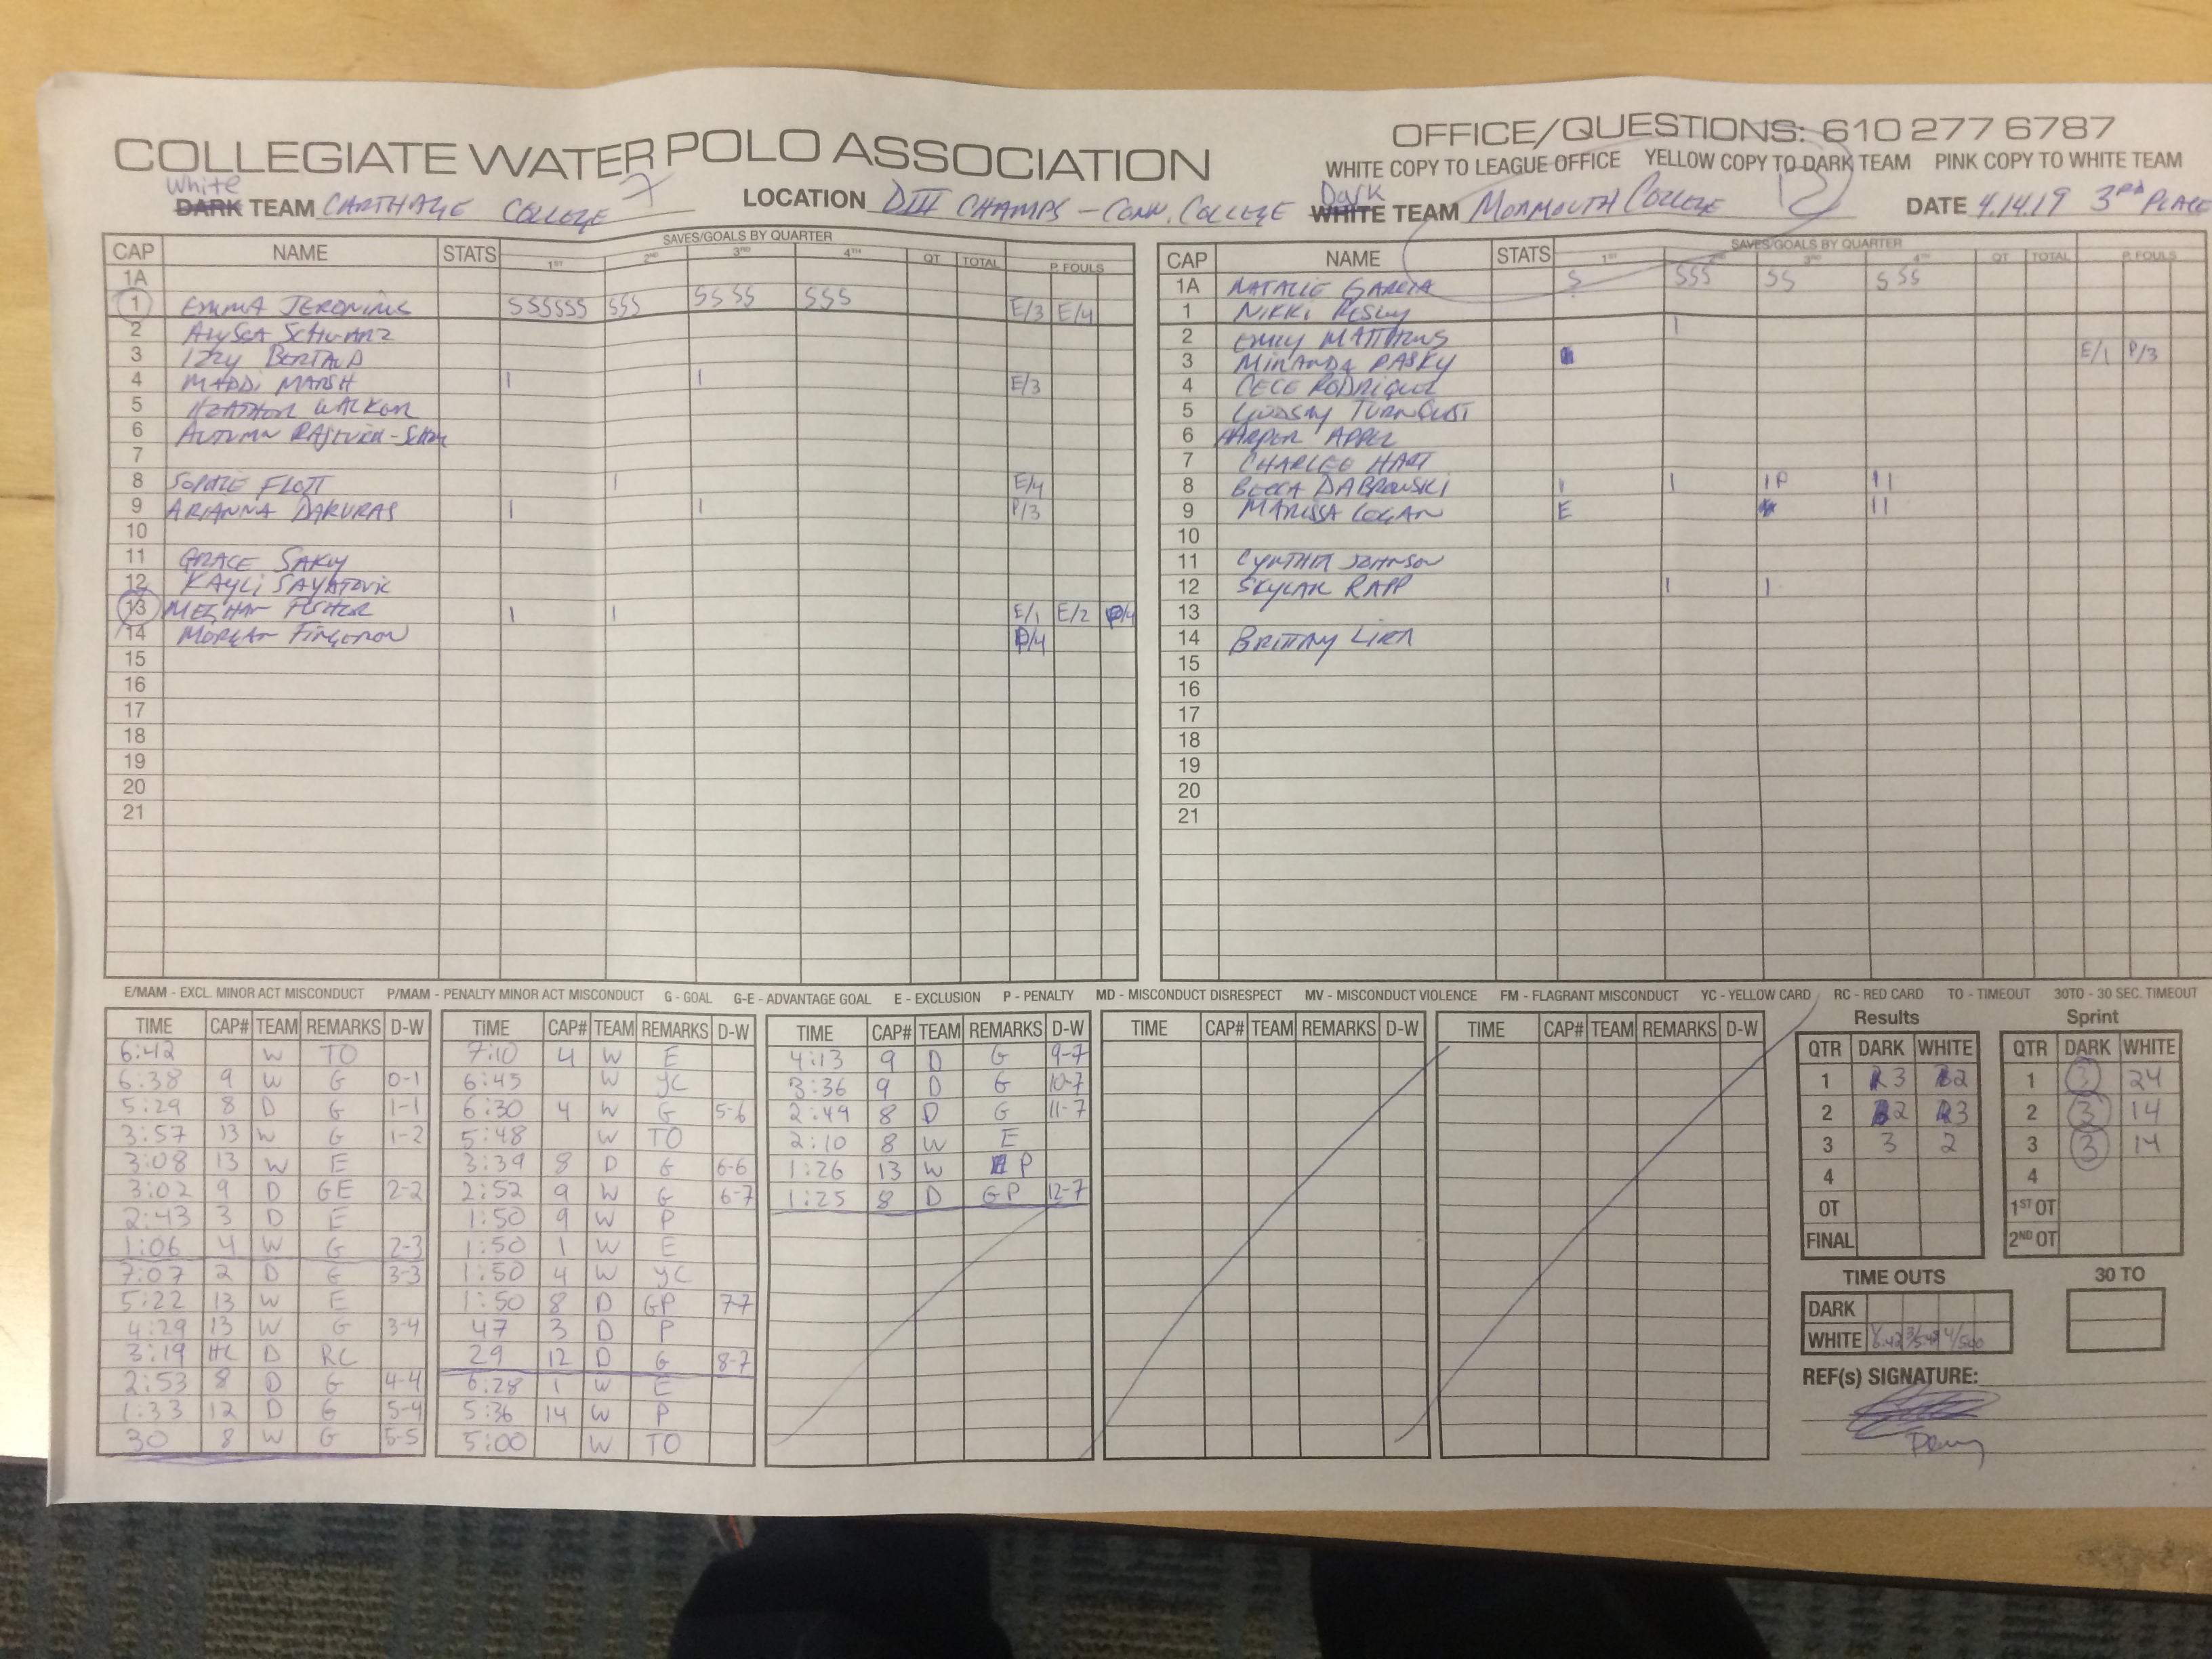 COLLEGIATE WATER POLO ASSOCIATION
OFFICE/QUESTIONS: 610 277 6787
WHITE COPY TO LEAGUE OFFICE YELLOW COPY TO DARK TEAM PINK COPY TO WHITE TEAM
White
DARK TEAM CARTHAGE COLLEGE 7 LOCATION DIII CHAMPS - CONN. COLLEGE
Dark
WHITE TEAM MONMOUTH COLLEGE 12 DATE 4.14.19 3RD PLACE
CAP NAME STATS SAVES/GOALS BY QUARTER 1ST 2ND 3RD 4TH OT TOTAL P. FOULS
1A
1 EMMA JERONIMUS SSSSSS SSS SSSS SSS E/3 E/4
2 ALYSSA SCHWARZ
3 IZZY BERTAUD
4 MADDI MARSH I I E/3
5 HEATHER WALKER
6 AUTUMN
7
8 SOPHIE FLOTT I E/4
9 ARIANNA DAKURAS I I P/3
10
11 GRACE SAKIY
12 KAYLI SAYATOVIC
13 MEGHAN FISHER I I E/1 E/2 P/4
14 MORGAN P/4
15
16
17
18
19
20
21
CAP NAME STATS SAVES/GOALS BY QUARTER 1ST 2ND 3RD 4TH OT TOTAL P. FOULS
1A NATALIE GARCIA S SSS SS SSS
1 NIKKI
2 EMILY MATTHEWS I
3 MIRANDA PASKY E/1 P/3
4 CECE RODRIGUEZ
5 LINDSAY TURNQUIST
6 HARPER APPEL
7 CHARLEE HART
8 BECCA DABROWSKI I I IP I I
9 MARISSA LOGAN E I I
10
11 CYNTHIA JOHNSON
12 SKYLAR RAPP I I
13
14 BRITTNY LIRA
15
16
17
18
19
20
21
E/MAM - EXCL. MINOR ACT MISCONDUCT P/MAM - PENALTY MINOR ACT MISCONDUCT G - GOAL G-E - ADVANTAGE GOAL E - EXCLUSION P - PENALTY MD - MISCONDUCT DISRESPECT MV - MISCONDUCT VIOLENCE FM - FLAGRANT MISCONDUCT YC - YELLOW CARD RC - RED CARD TO - TIMEOUT 30TO - 30 SEC. TIMEOUT
TIME CAP# TEAM REMARKS D-W
6:42 W TO
6:38 9 W G 0-1
5:29 8 D G 1-1
3:57 13 W G 1-2
3:08 13 W E
3:02 9 D GE 2-2
2:43 3 D E
1:06 4 W G 2-3
7:07 2 D G 3-3
5:22 13 W E
4:29 13 W G 3-4
3:19 HC D RC
2:53 8 D G 4-4
1:33 12 D G 5-4
30 8 W G 5-5
TIME CAP# TEAM REMARKS D-W
7:10 4 W E
6:45 W YC
6:30 4 W G 5-6
5:48 W TO
3:39 8 D G 6-6
2:52 9 W G 6-7
1:50 9 W P
1:50 1 W E
1:50 4 W YC
1:50 8 D GP 7-7
47 3 D P
29 12 D G 8-7
6:28 1 W E
5:36 14 W P
5:00 W TO
TIME CAP# TEAM REMARKS D-W
4:13 9 D G 9-7
3:36 9 D G 10-7
2:49 8 D G 11-7
2:10 8 W E
1:26 13 W P
1:25 8 D GP 12-7
TIME CAP# TEAM REMARKS D-W
TIME CAP# TEAM REMARKS D-W
Results
QTR DARK WHITE
1 3 2
2 2 3
3 3 2
4
OT
FINAL
Sprint
QTR DARK WHITE
1 3 24
2 3 14
3 3 14
4
1ST OT
2ND OT
TIME OUTS
DARK
WHITE 1/6:42 3/5:48 4/5:00
30 TO
REF(s) SIGNATURE: